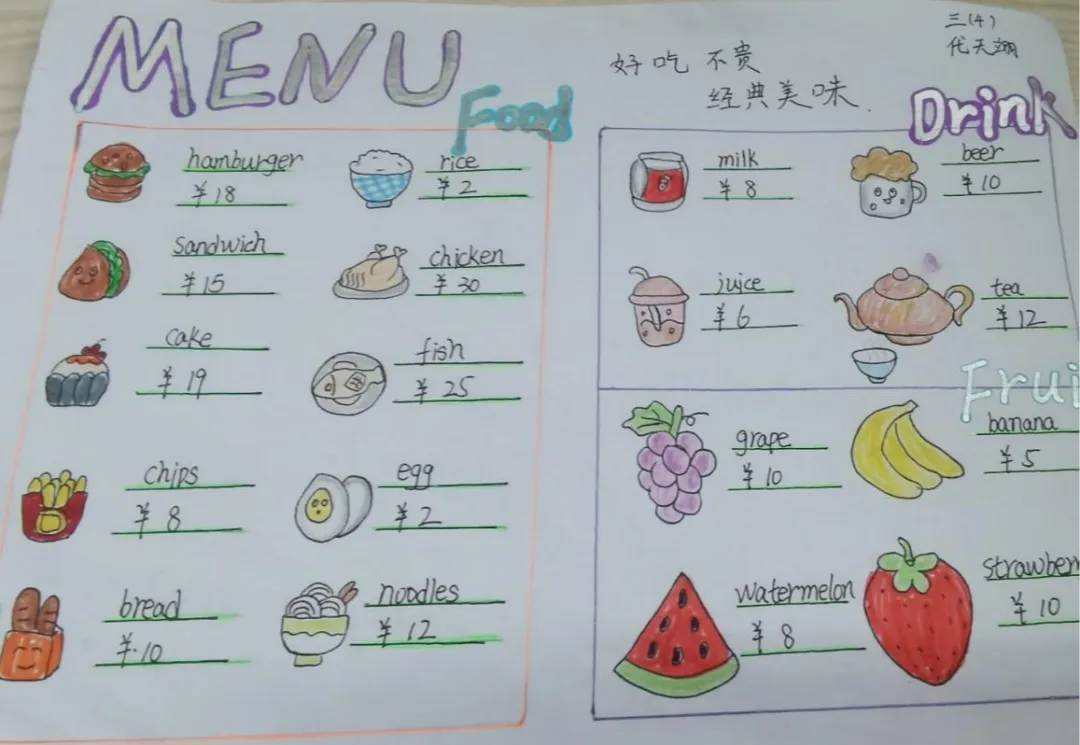 MENU
三(4)
代天翊
好吃 不贵
经典美味.
Food
hamburger
¥18
rice
¥2
sandwich
¥15
chicken
¥30
cake
¥19
fish
¥25
chips
¥8
egg
¥2
bread
¥10
noodles
¥12
Drink
milk
¥8
beer
¥10
juice
¥6
tea
¥12
Frui
grape
¥10
banana
¥5
watermelon
¥8
strawberr
¥10